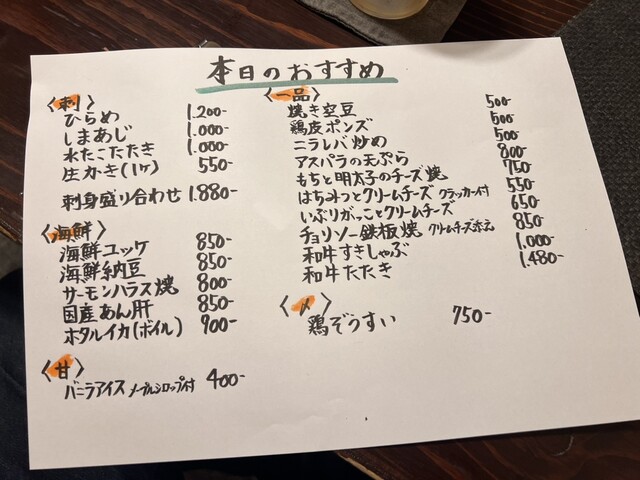 本日のおすすめ
〈刺〉
ひらめ 1,200-
しまあじ 1,000-
水たこたたき 1,000-
生かき(1ヶ) 550-
刺身盛り合わせ 1,880-
〈海鮮〉
海鮮ユッケ 850-
海鮮納豆 850-
サーモンハラス焼 800-
国産あん肝 850-
ホタルイカ(ボイル) 900-
〈甘〉
バニラアイス メープルシロップ付 400-
〈一品〉
焼き空豆 500-
鶏皮ポンズ 500-
ニラレバ炒め 500-
アスパラの天ぷら 800-
もちと明太子のチーズ焼 750-
はちみつとクリームチーズ クラッカー付 550-
いぶりがっことクリームチーズ 650-
チョリソー鉄板焼 クリームチーズ添え 850-
和牛すきしゃぶ 1,000-
和牛たたき 1,480-
〈〆〉
鶏ぞうすい 750-